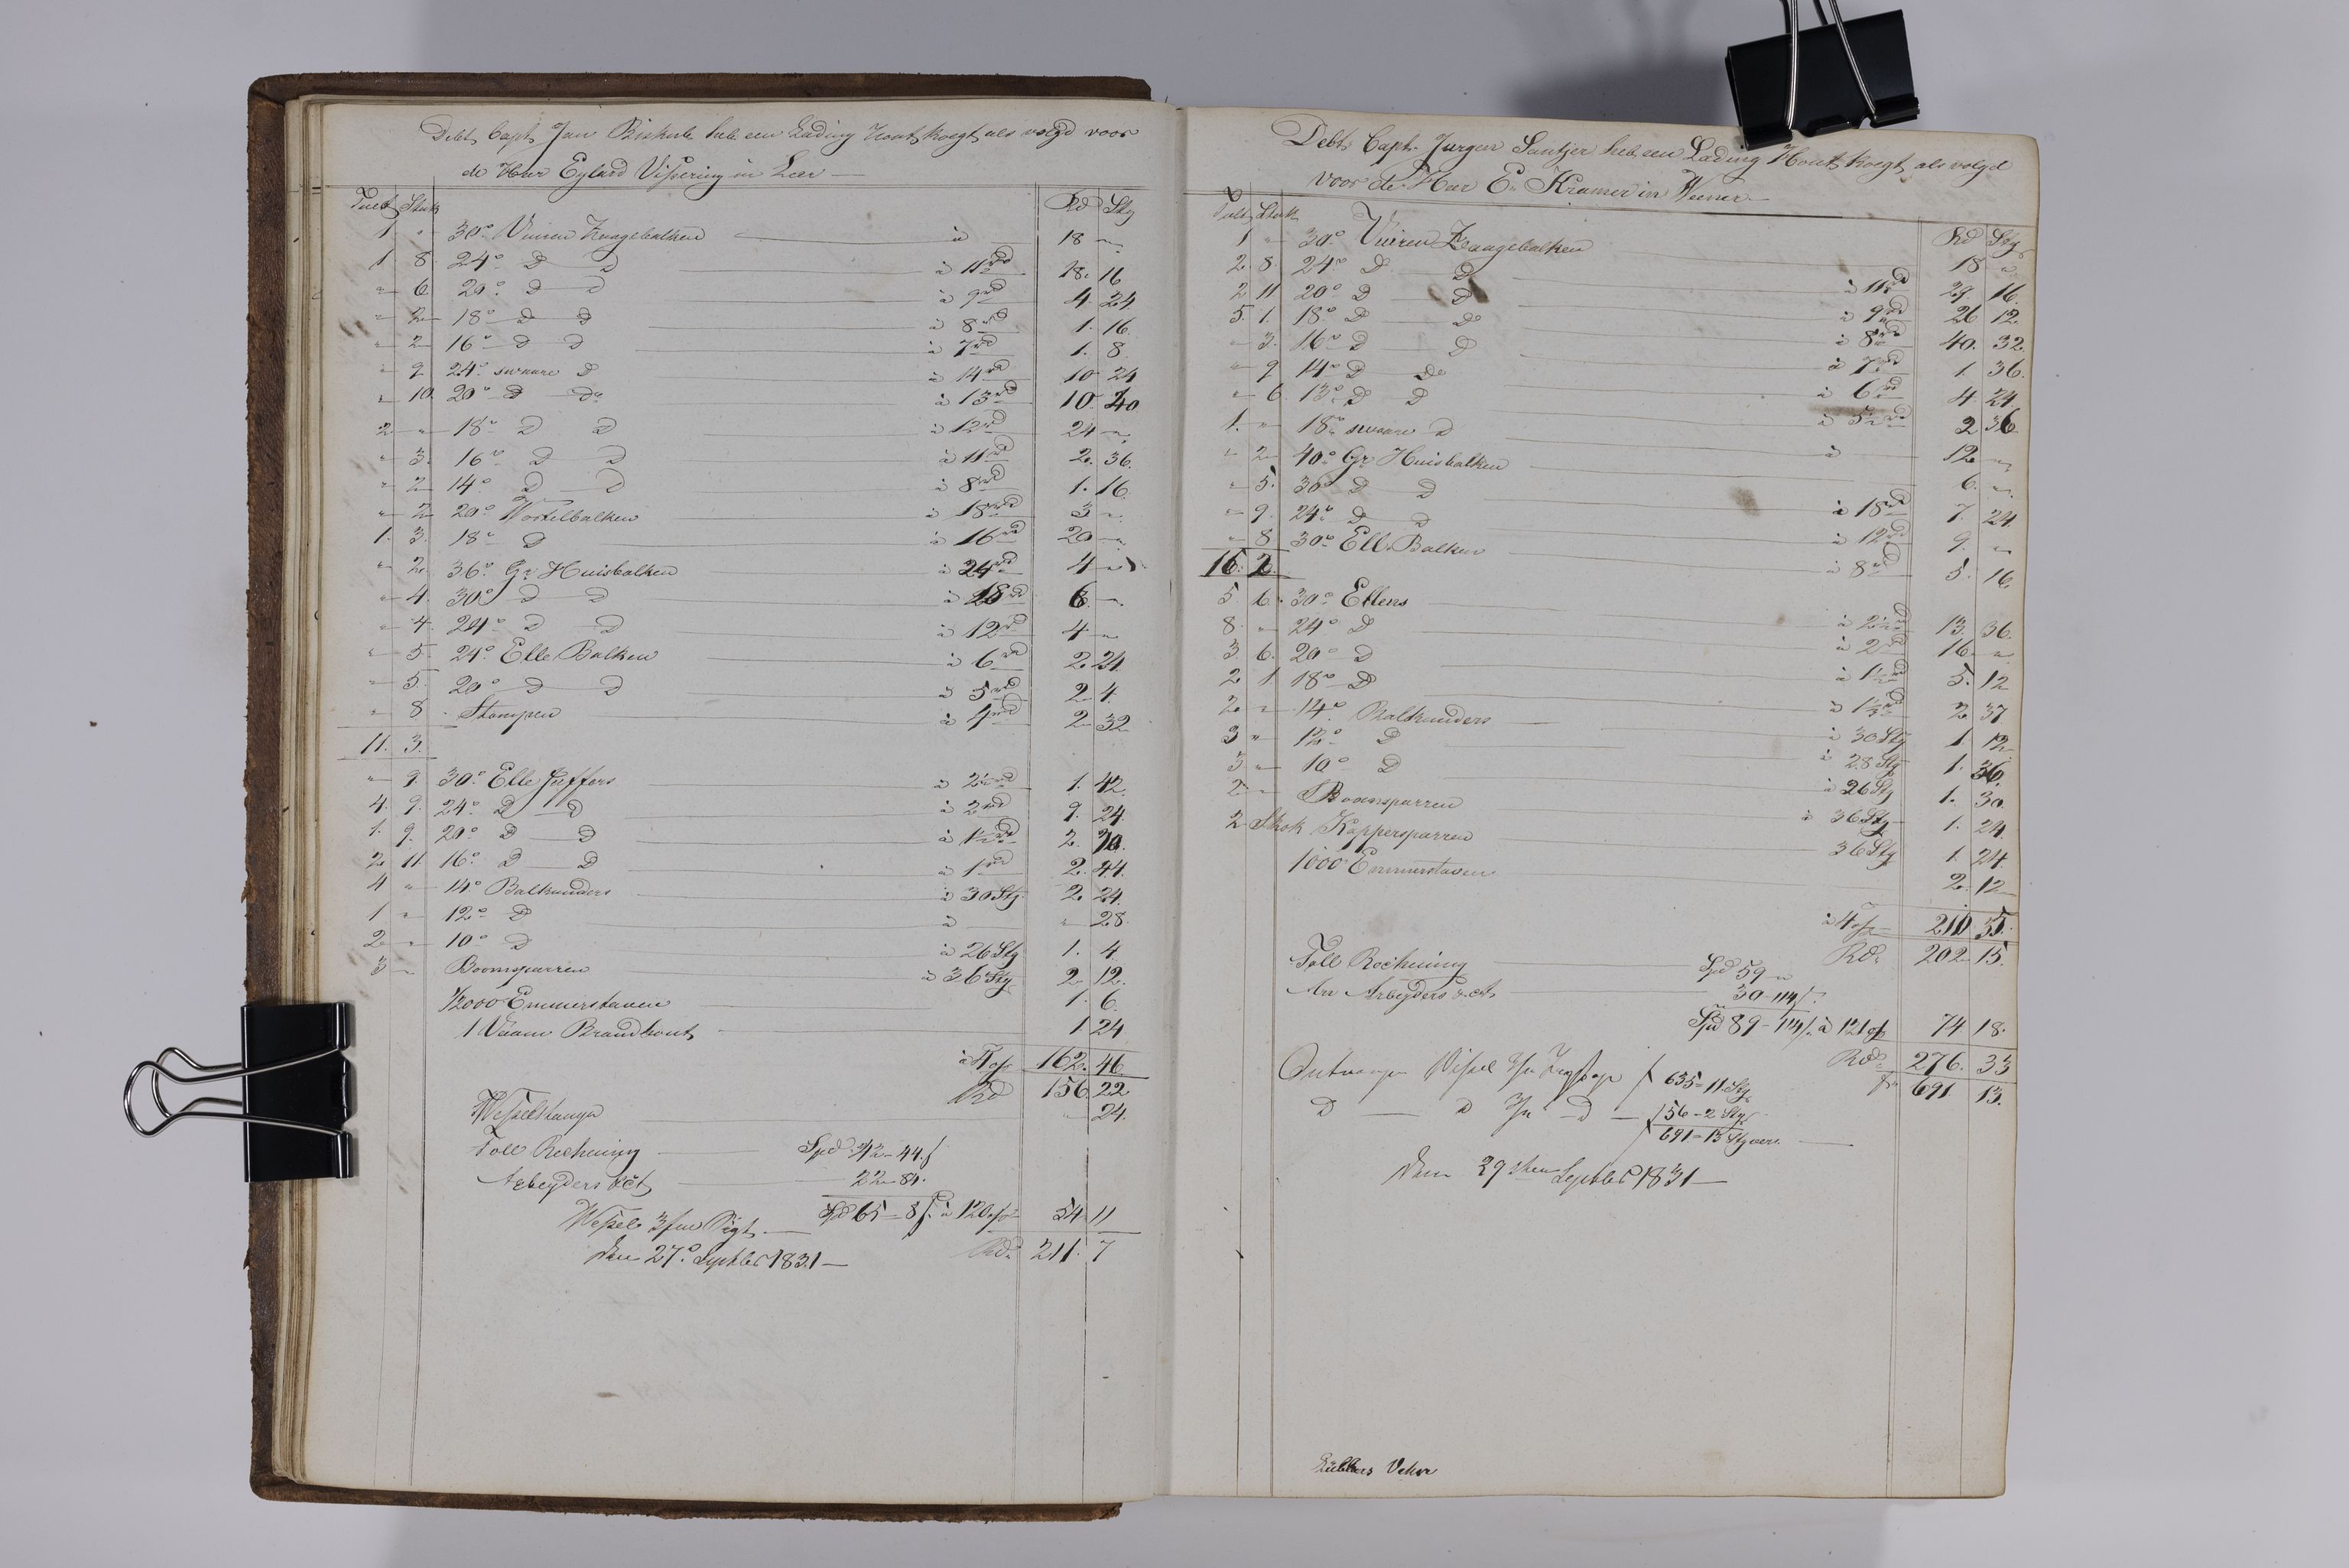 Debt Capt Jan heb een Lading Hout koegt als volgd voor
de Heer Eylard Vissering in Leer —
Tult Stuk Rd Stg
1 " 30° Vuiren Zaagebalken — à 18 "
1. 8. 24° D D — à 11 rd 18. 16
" 6 20° D D — à 9 rd 4. 24
" 2 18° D D — à 8 rd 1. 16.
" 2 16° D D — à 7 rd 1. 8
" 9 24° swaare D — à 14 rd 10 24
" 10. 20° D Do — à 13 rd 10 40
2 " 18° D D — à 12 rd 24 "
" 3. 16° D D — à 11 rd 2. 36.
" 2 14° D D — à 8 rd 1. 16.
" 2 20° Wortelbalken — à 18 rd 3 "
1. 3. 18° D — à 16 rd 20 "
" 2. 36° Gr Huisbalken — à 24 rd 4 "
" 4. 30° D D — à 18 rd 6 "
" 4. 24° D D — à 12 rd 4 "
" 5. 24° Elle Balken — à 6 rd 2. 24.
" 5. 20° D D — à 5 rd 2 4.
" 8 Stompen — à 4 rd 2 32
11. 3.
" 9 30° Elle Juffers — à 2½ rd 1. 42.
4. 9. 24° D D — à 2 rd 9. 24
1. 9. 20° D D — à 1½ rd 2.
2. 11. 16° D D — à 1 rd 2. 44.
4 " 14° Balkunders — à 30 Stg 2. 24.
1 " 12° D — à " 28.
2 " 10° D — à 26 Stg 1. 4.
3 " Boomsparren — à 36 Stg 2 12.
1/2000 Emmerstaven — 1. 6.
1 Vaam Brandhout — 1 24
à 4 % 162. 46.
Rd 156. 22
24.
Toll Rechning — Spd 42 - 44 f
Arbeyders &ct — 22 - 84.
Spd 65 - 8 f. à 120 % 54 11
Wessels 3/m Sigt —
Den 27° Septbr 1831 — Rd. 211. 7
Debt Capt. Jurgen Santjer heb een Lading Hout koegt als volgd
voor de Heer E. Kramer in Weener —
Tult Stuk Rd Stg
1 " 30° Vuiren Zaagebalken — 18 "
2. 8. 24° D D — à 11 rd 29. 16.
2 11 20° D D — à 9 rd 26 12.
5. 1. 18° D D — à 8 rd 40. 32.
" 3. 16° D D — à 7 rd 1. 36.
" 9 14° D Do — à 6 rd 4. 24
" 6 13° D D — à 5½ rd 2 36
1. " 18° swaare D — à 12 "
" 2 40° Gr Huisbalken — 6. "
" 5. 30° D D — à 18 rd 7. 24
" 9. 24° D D — à 12 rd 9. "
" 8 30° Ell. Balken — à 8 rd 5. 16.
16. 2.
5 6. 30° Ellens — à 2½ rd 13. 36.
8. " 24° D — à 2 rd 16. "
3 6. 20° D — à 1½ rd 5. 12
2 1 18° D — à 1¼ rd 2. 37
2. " 14° Balkunders — à 30 Stg 1. 12
3 " 12° D — à 28 Stg 1. 36.
3 " 10° D — à 26 Stg 1. 30.
2 " Boomsparren — à 36 Stg 1. 24
2 Shok Kappersparren — 36 Stg 1. 24.
1000 Emmerstaven — 2. 12
à 4 % 210 35.
Rd. 202 15.
Toll Rechning — Spd 59 "
An Arbeyders &ct — 30 - 114 f.
Spd 89 - 114 f. à 121 % 74 18.
Rd. 276. 33
f 691 13.
Ontvangen Wissel f 635 - 11 Stg
D — D 3/m D — f 56 - 2 Stg
f 691 - 13 Styvers. —
Den 29sten Septbr 1831 —
Lübbers Vehn